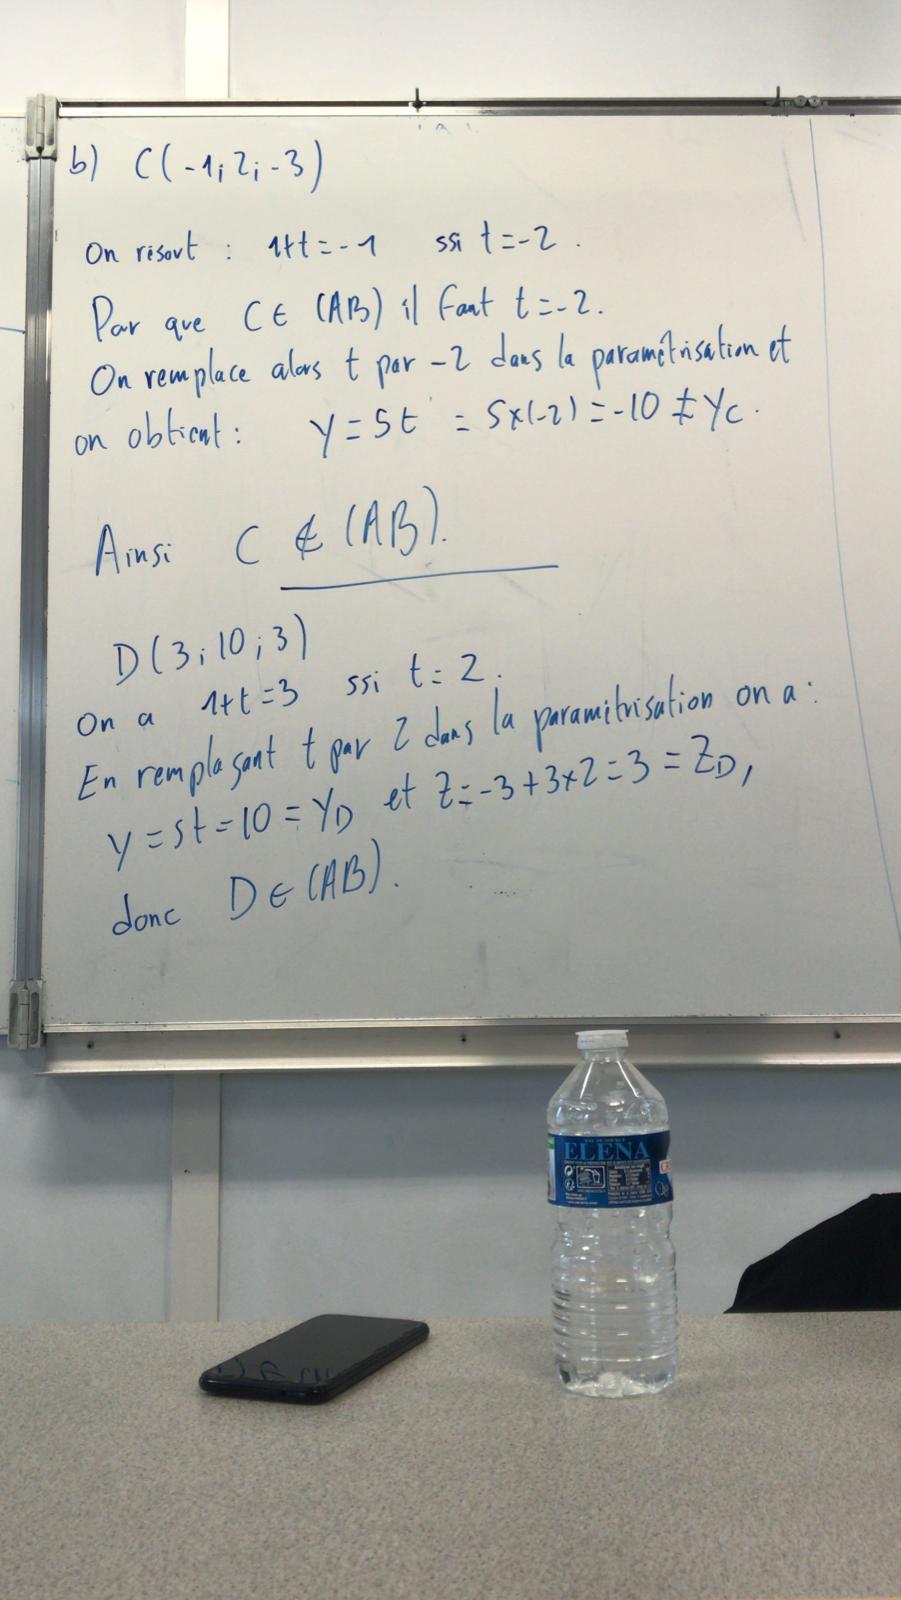 b) C(-1;2;-3)
On résout : 1+t=-1 ssi t=-2.
Pour que C∈(AB) il faut t=-2.
On remplace alors t par -2 dans la paramétrisation et
on obtient : y=5t =5x(-2)=-10≠yc.
Ainsi C∉(AB).
D(3;10;3)
On a 1+t=3 ssi t=2.
En remplaçant t par 2 dans la paramétrisation on a :
y=5t=10=yD et z=-3+3x2=3=zD,
donc D∈(AB).
ELENA